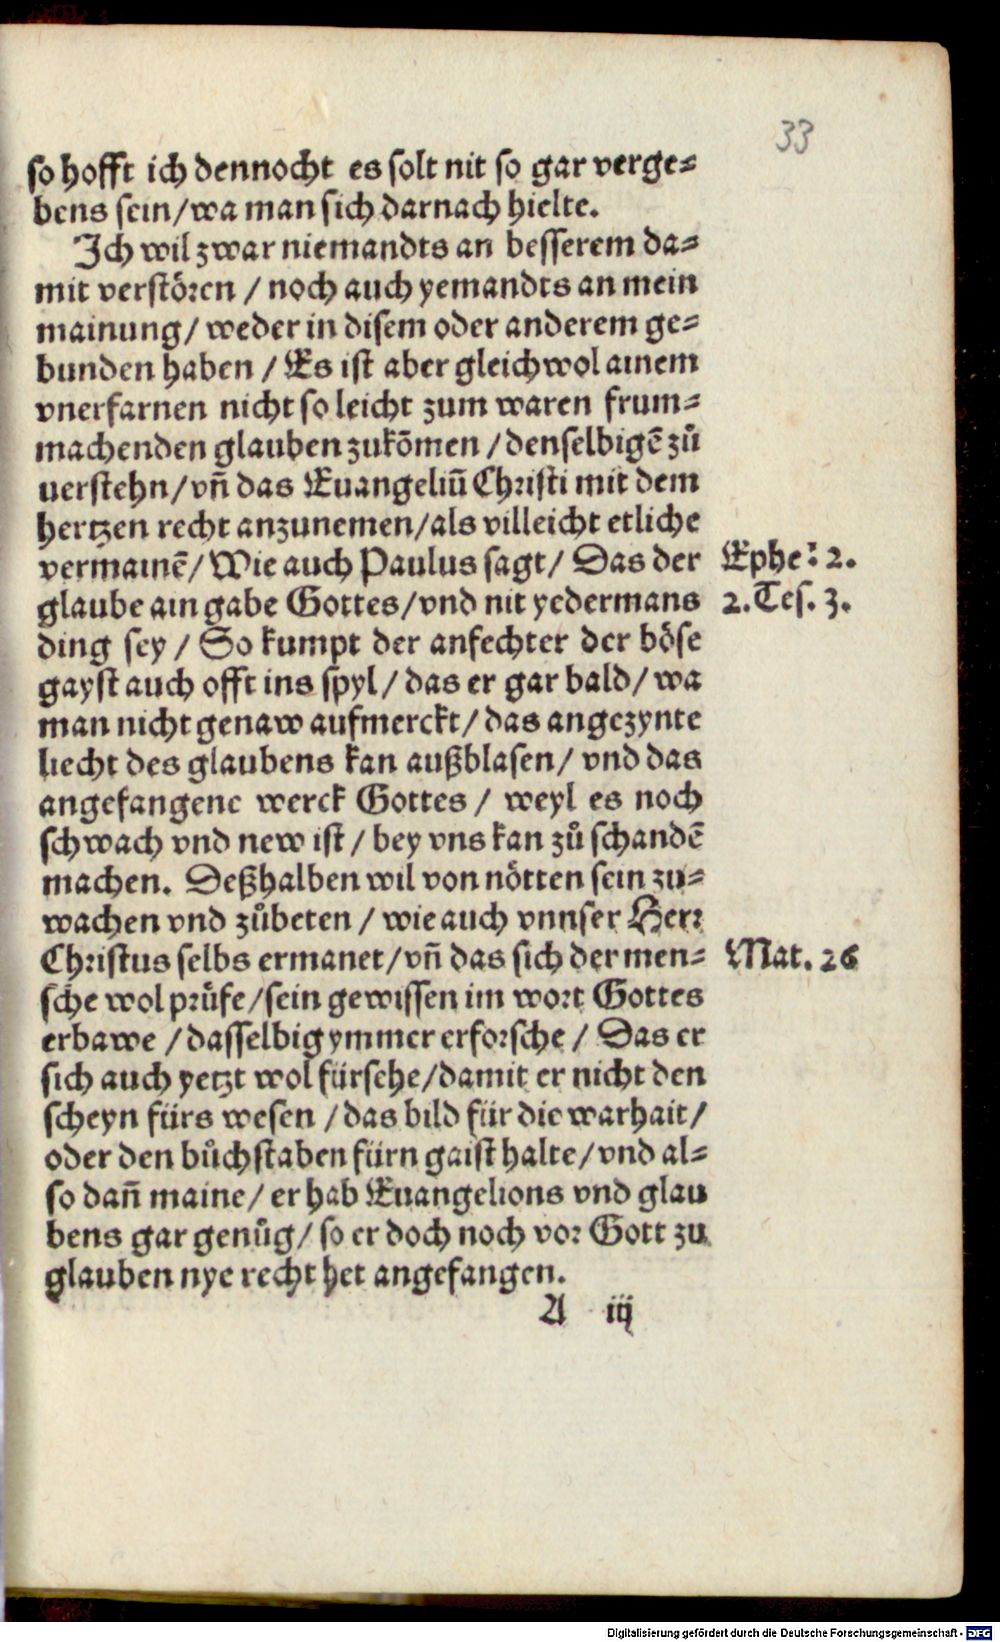 33
so hofft ich dennocht es solt nit so gar verge⸗
bens sein/wa man sich darnach hielte.
Ich wil zwar niemandts an besserem da⸗
mit verstören / noch auch yemandts an mein
mainung/ weder in disem oder anderem ge⸗
bunden haben / Es ist aber gleichwol ainem
vnerfarnen nicht so leicht zum waren frum⸗
machenden glauben zukōmen /denselbigē zů
uerstehn/vñ das Euangeliū Christi mit dem
hertzen recht anzunemen/als villeicht etliche
vermainē/ Wie auch Paulus sagt/ Das der Ephe: 2.
glaube ain gabe Gottes/vnd nit yedermans 2.Tes. 3.
ding sey / So kumpt der anfechter der böse
gayst auch offt ins spyl/ das er gar bald/ wa
man nicht genaw aufmerckt/ das angezynte
liecht des glaubens kan außblasen/ vnd das
angefangene werck Gottes / weyl es noch
schwach vnd new ist/ bey vns kan zů schandē
machen. Deßhalben wil von nötten sein zu⸗
wachen vnd zůbeten / wie auch vnnser Herr
Christus selbs ermanet/vñ das sich der men⸗ Mat. 26
sche wol prüfe/sein gewissen im wort Gottes
erbawe /dasselbig ymmer erforsche / Das er
sich auch yetzt wol fürsehe/damit er nicht den
scheyn fürs wesen /das bild für die warhait/
oder den bůchstaben fürn gaist halte/vnd al⸗
so dañ maine/ er hab Euangelions vnd glau
bens gar genůg/ so er doch noch vor Gott zu
glauben nye recht het angefangen.
A iij
Digitalisierung gefördert durch die Deutsche Forschungsgemeinschaft - DFG